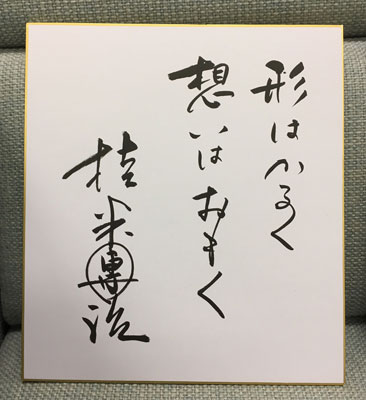 形はかるく
想いはおもく
桂米團治